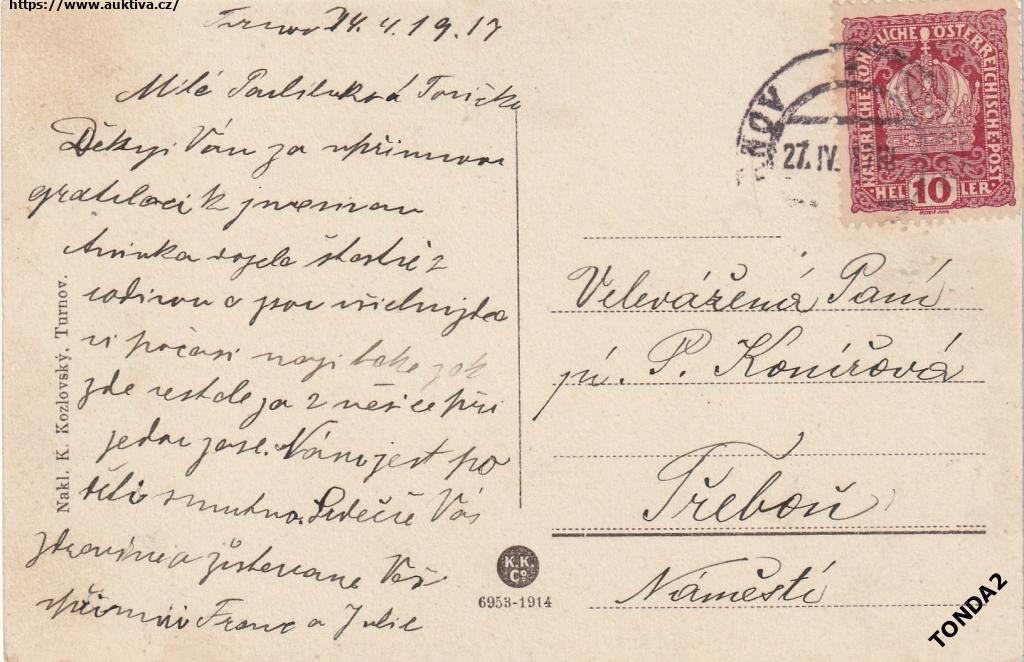 https://www.auktiva.cz/
Turnov 24.4.1917
Milá Paulinko a Toničko
Děkuji Vám za upřímnou
gratulaci k jmeninám
Aninka dojela štastně z
rodinou a jsou
počasi mají také jak
zde je za 2 měsice při
jedou zase. Nám jest po
děti smutno. Srdečně Vás
zdravíme a zůstavame Vaš
upřimní Franc a Julie
Nakl. K. Kozlovský, Turnov.
K.K.
Co.
6953-1914
RNOV
27.IV.
KAISERLICHE KÖNIGLICHE ÖSTERREICHISCHE POST
HEL 10 LER
Velevážená Paní
pí. P. Konířová
Třeboň
Náměstí
TONDA2